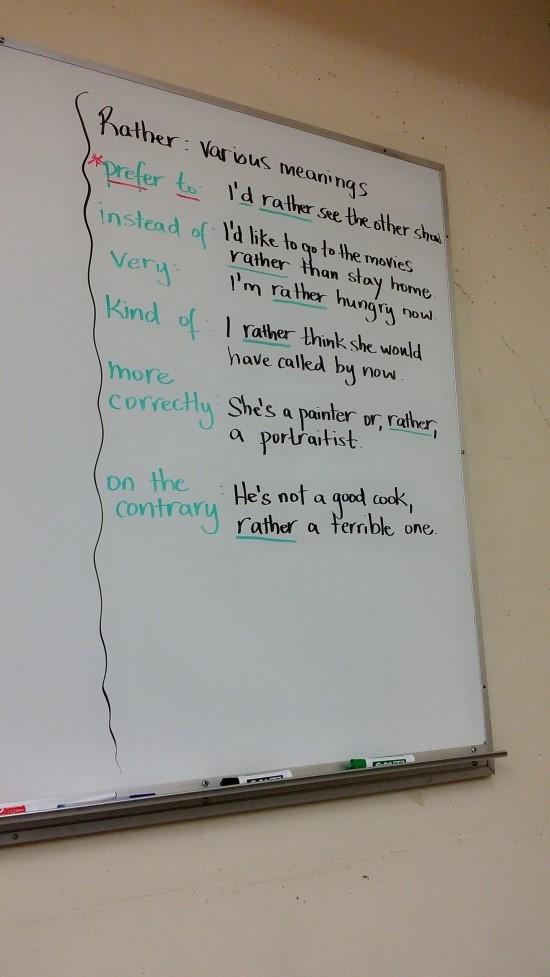 Rather: Various meanings
*prefer to: I'd rather see the other show.
instead of: I'd like to go to the movies
rather than stay home.
Very: I'm rather hungry now.
Kind of: I rather think she would
have called by now.
more
correctly: She's a painter or, rather,
a portraitist.
on the
contrary: He's not a good cook,
rather a terrible one.